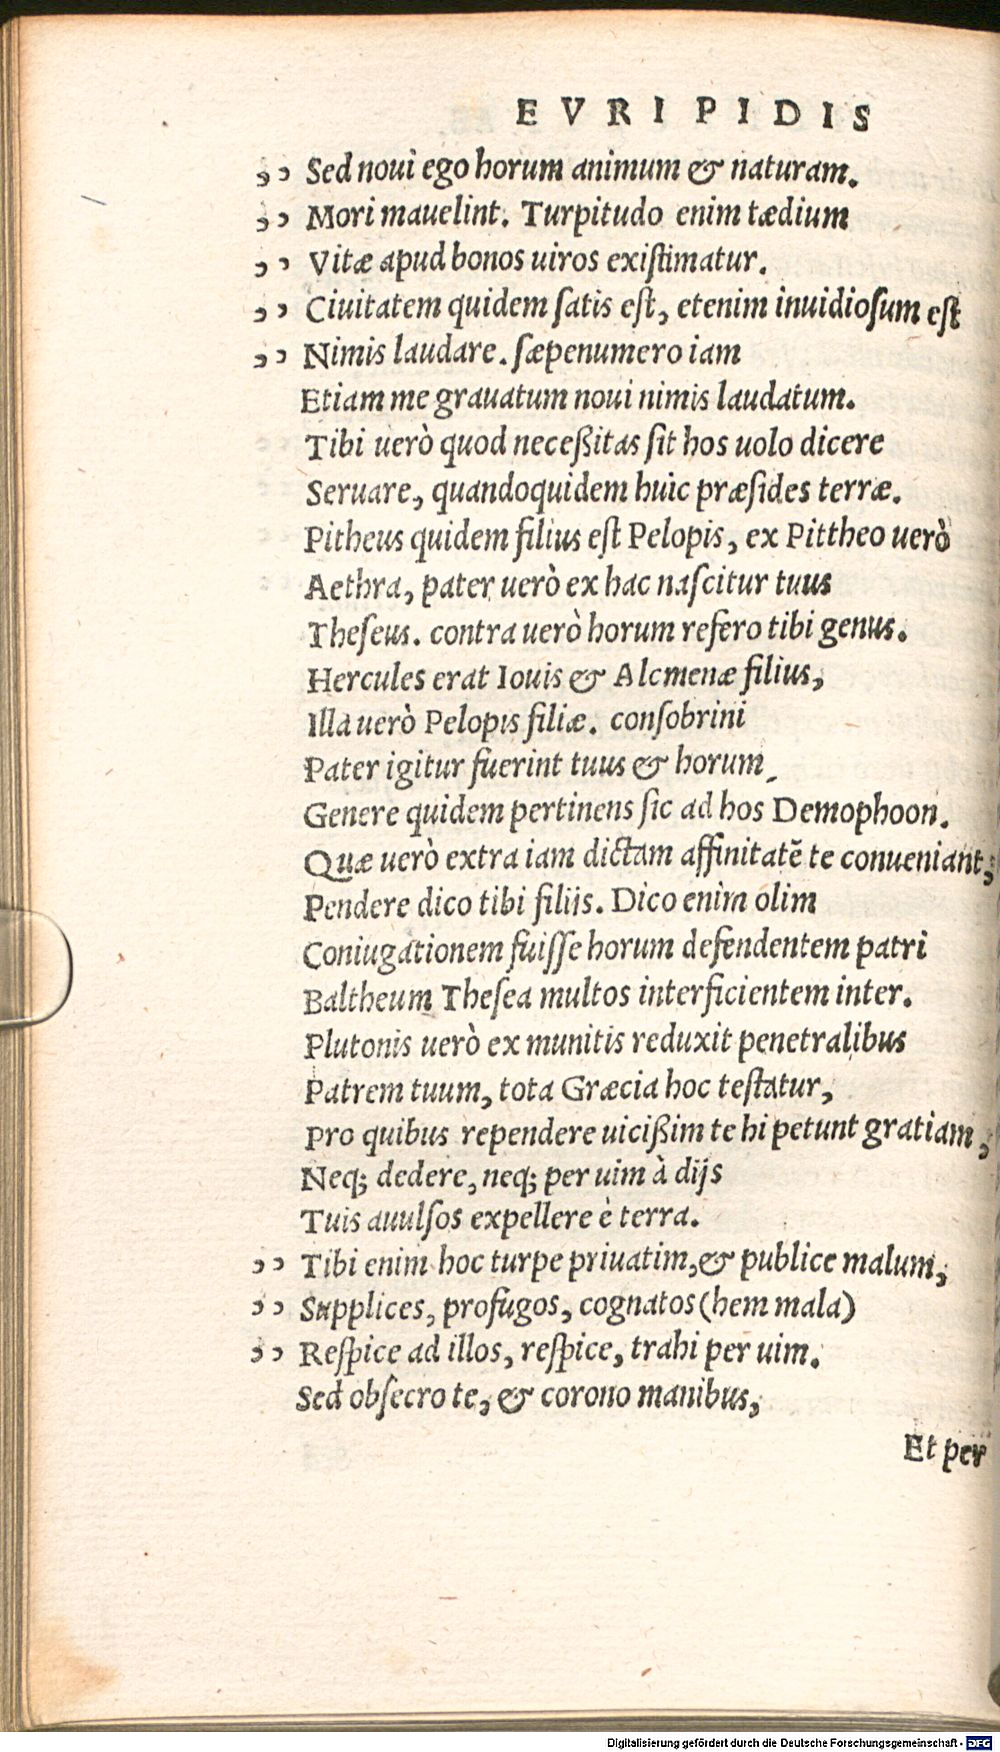 EVRIPIDIS
,, Sed noui ego horum animum & naturam.
,, Mori mauelint. Turpitudo enim tædium
,, Vitæ apud bonos uiros existimatur.
,, Ciuitatem quidem satis est, etenim inuidiosum est
,, Nimis laudare. sæpenumero iam
Etiam me grauatum noui nimis laudatum.
Tibi uerò quod neceßitas sit hos uolo dicere
Seruare, quandoquidem huic præsides terræ.
Pitheus quidem filius est Pelopis, ex Pittheo uerò
Aethra, pater uerò ex hac nascitur tuus
Theseus. contra uerò horum refero tibi genus.
Hercules erat Iouis & Alcmenæ filius,
Illa uerò Pelopis filiæ. consobrini
Pater igitur fuerint tuus & horum
Genere quidem pertinens sic ad hos Demophoon.
Quæ uerò extra iam dictam affinitatẽ te conueniant,
Pendere dico tibi filijs. Dico enim olim
Coniugationem fuisse horum defendentem patri
Baltheum Thesea multos interficientem inter.
Plutonis uerò ex munitis reduxit penetralibus
Patrem tuum, tota Græcia hoc testatur,
Pro quibus rependere uicißim te hi petunt gratiam,
Neq; dedere, neq; per uim à dijs
Tuis auulsos expellere è terra.
,, Tibi enim hoc turpe priuatim, & publice malum,
,, Supplices, profugos, cognatos (hem mala)
,, Respice ad illos, respice, trahi per uim.
Sed obsecro te, & corono manibus,
Et per
Digitalisierung gefördert durch die Deutsche Forschungsgemeinschaft - DFG